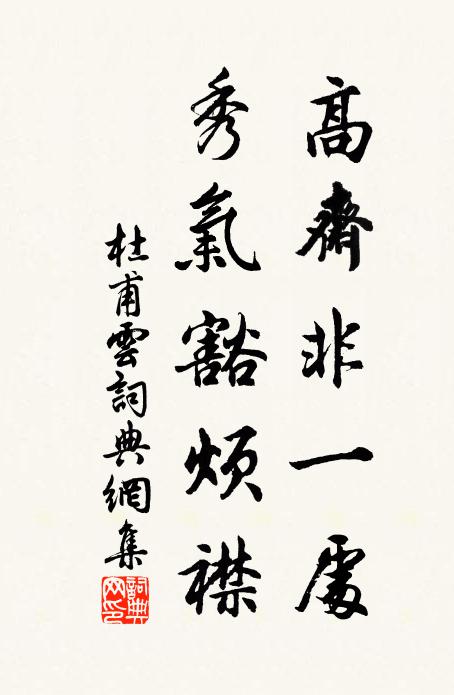 高齋非一處
秀氣豁煩襟
杜甫雲詞典網集
詞典網印